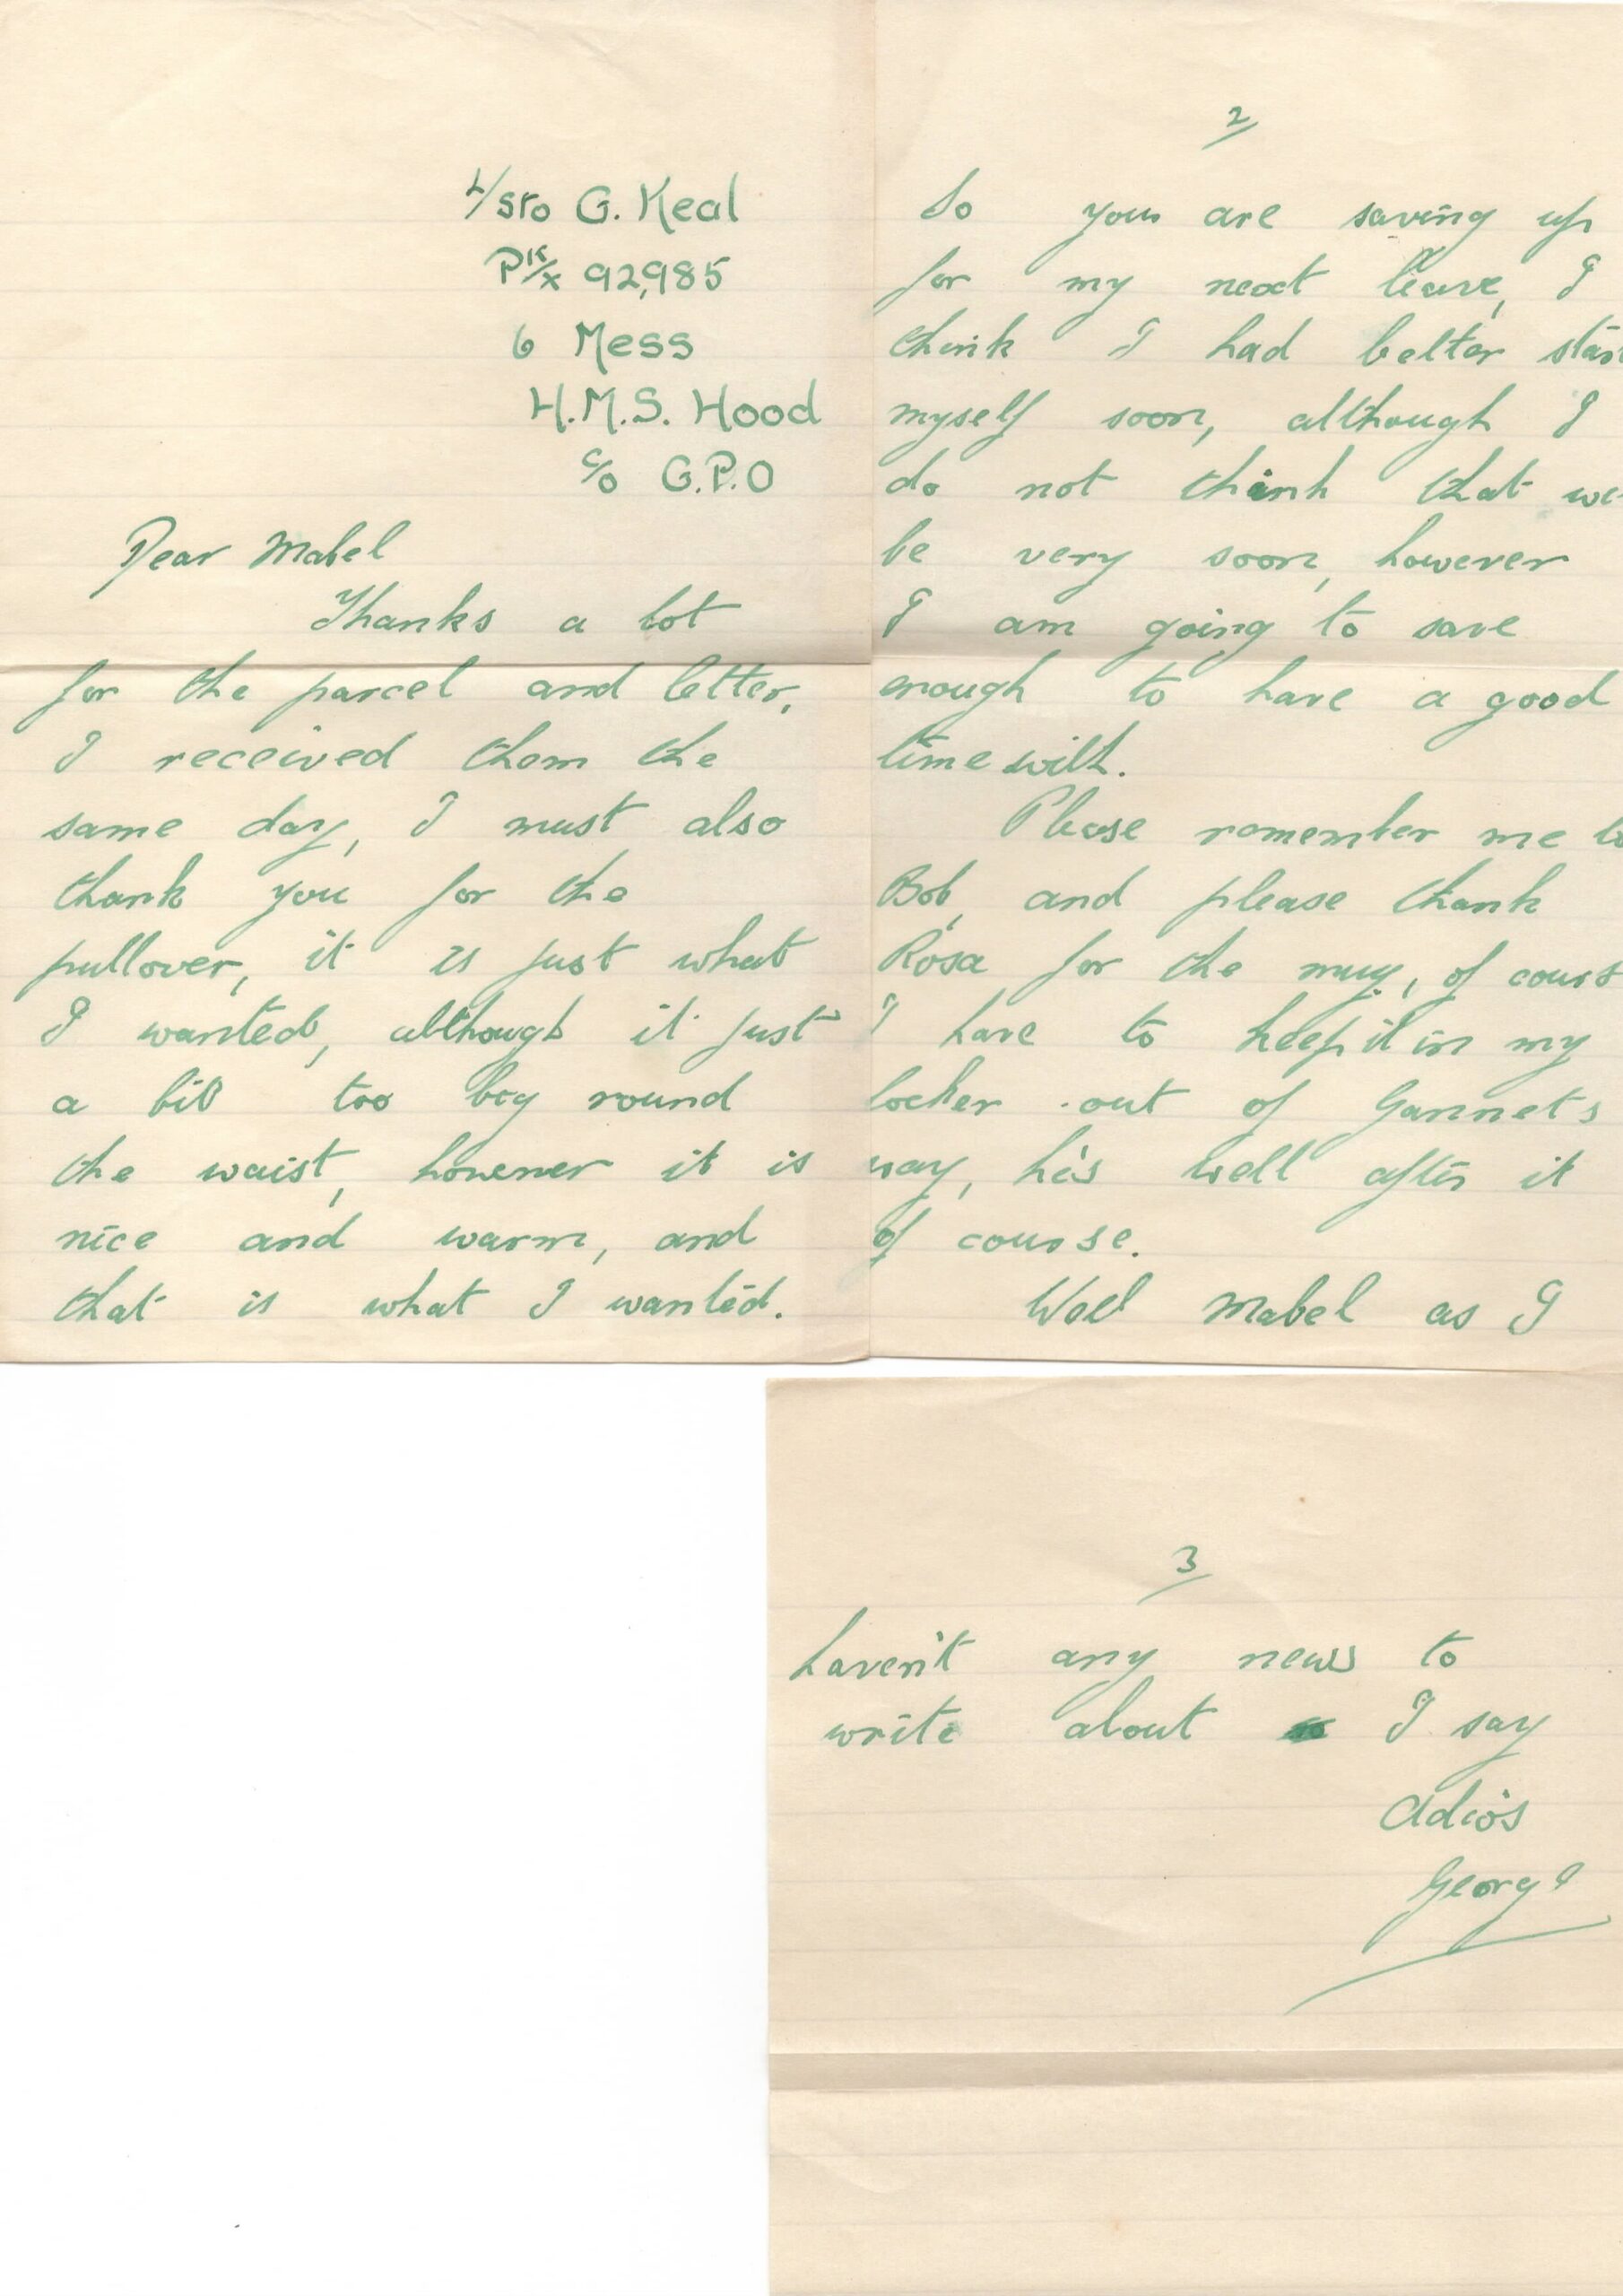 L/Sto G. Keal
PK/x 92,985
6 Mess
H.M.S. Hood
c/o G.P.O
Dear Mabel
Thanks a lot
for the parcel and letter,
I received them the
same day, I must also
thank you for the
pullover, it is just what
I wanted, although it just
a bit too big round
the waist, however it is
nice and warm, and
that is what I wanted.
2
So you are saving up
for my next leave, I
think I had better star
myself soon, although I
do not think that we
be very soon, however
I am going to save
enough to have a good
time with.
Please remember me to
Bob, and please thank
Rosa for the mug, of cours
I have to keep it in my
locker out of Gannets
way, he's well after it
of course.
Well Mabel as I
3
haven't any news to
write about I say
Adios
George